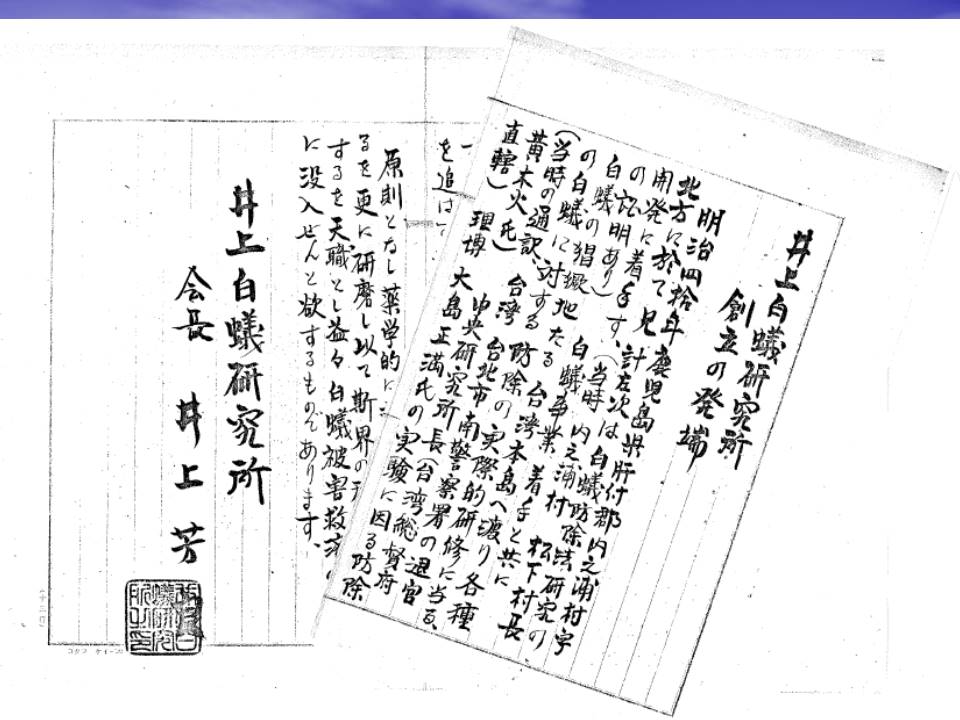 井上白蟻研究所
創立の発端
明治四拾年 鹿児島県肝付郡内之浦村字
北方に於て兄計左次は白蟻防除法研究の
開発に着手す、(当時 内之浦村 松下村長
の証明あり) 白蟻事業着手と共に
白蟻の猖獗地たる台湾本島へ渡り各種
の白蟻に対する防除の実際的研修に当る、
(当時の通訳 台湾台北市南警察署の退官
黄木火氏) 中央研究所長(台湾総督府
直轄) 理博 大島正満氏の実験に因る防除
を追は
原則となし薬学的に
るを更に研磨し以て斯界の
するを天職とし益々白蟻被害救済
に没入せんと欲するものであります、
井上白蟻研究所
会長 井上 芳